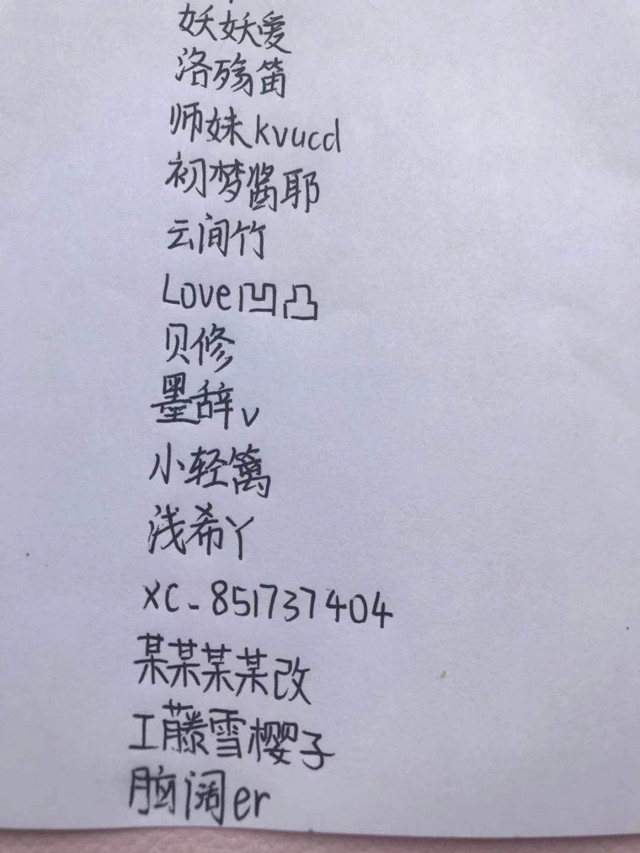 妖妖爱
洛殇笛
师妹kvucd
初梦酱耶
云间竹
Love凹凸
贝修
墨辞v
小轻篱
浅希丫
XC-851737404
某某某某改
工藤雪樱子
脑阔er